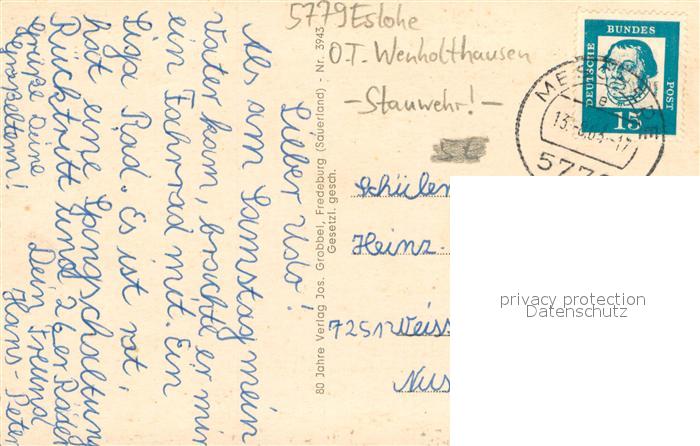 Lieber Udo!
Als am Samstag mein
Vater kam, brachte er mir
ein Fahrrad mit. Ein
Liga Rad. Es ist rot,
hat eine Gangschaltung
Rücktritt und 26er Räder
Dein Freund
Hans-Peter
Grüße Deine
80 Jahre Verlag Jos. Grobbel, Fredeburg (Sauerland) · Nr. 3943
Gesetzl. gesch.
5779 Eslohe
O.T. Wenholthausen
- Stauwehr! -
DEUTSCHE BUNDES POST
15
MESCHEDE
Schüler
Heinz-
7251 Weiss
privacy protection
Datenschutz